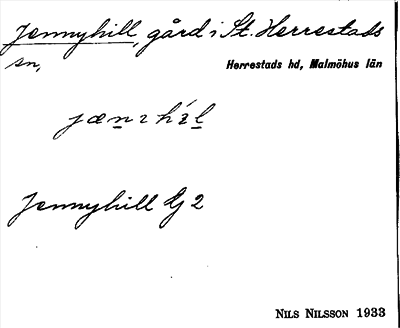 Jennyhill, gård i St. Herrestads
sn,
Herrestads hd, Malmöhus län
Jennyhill Gj 2
NILS NILSSON 1933